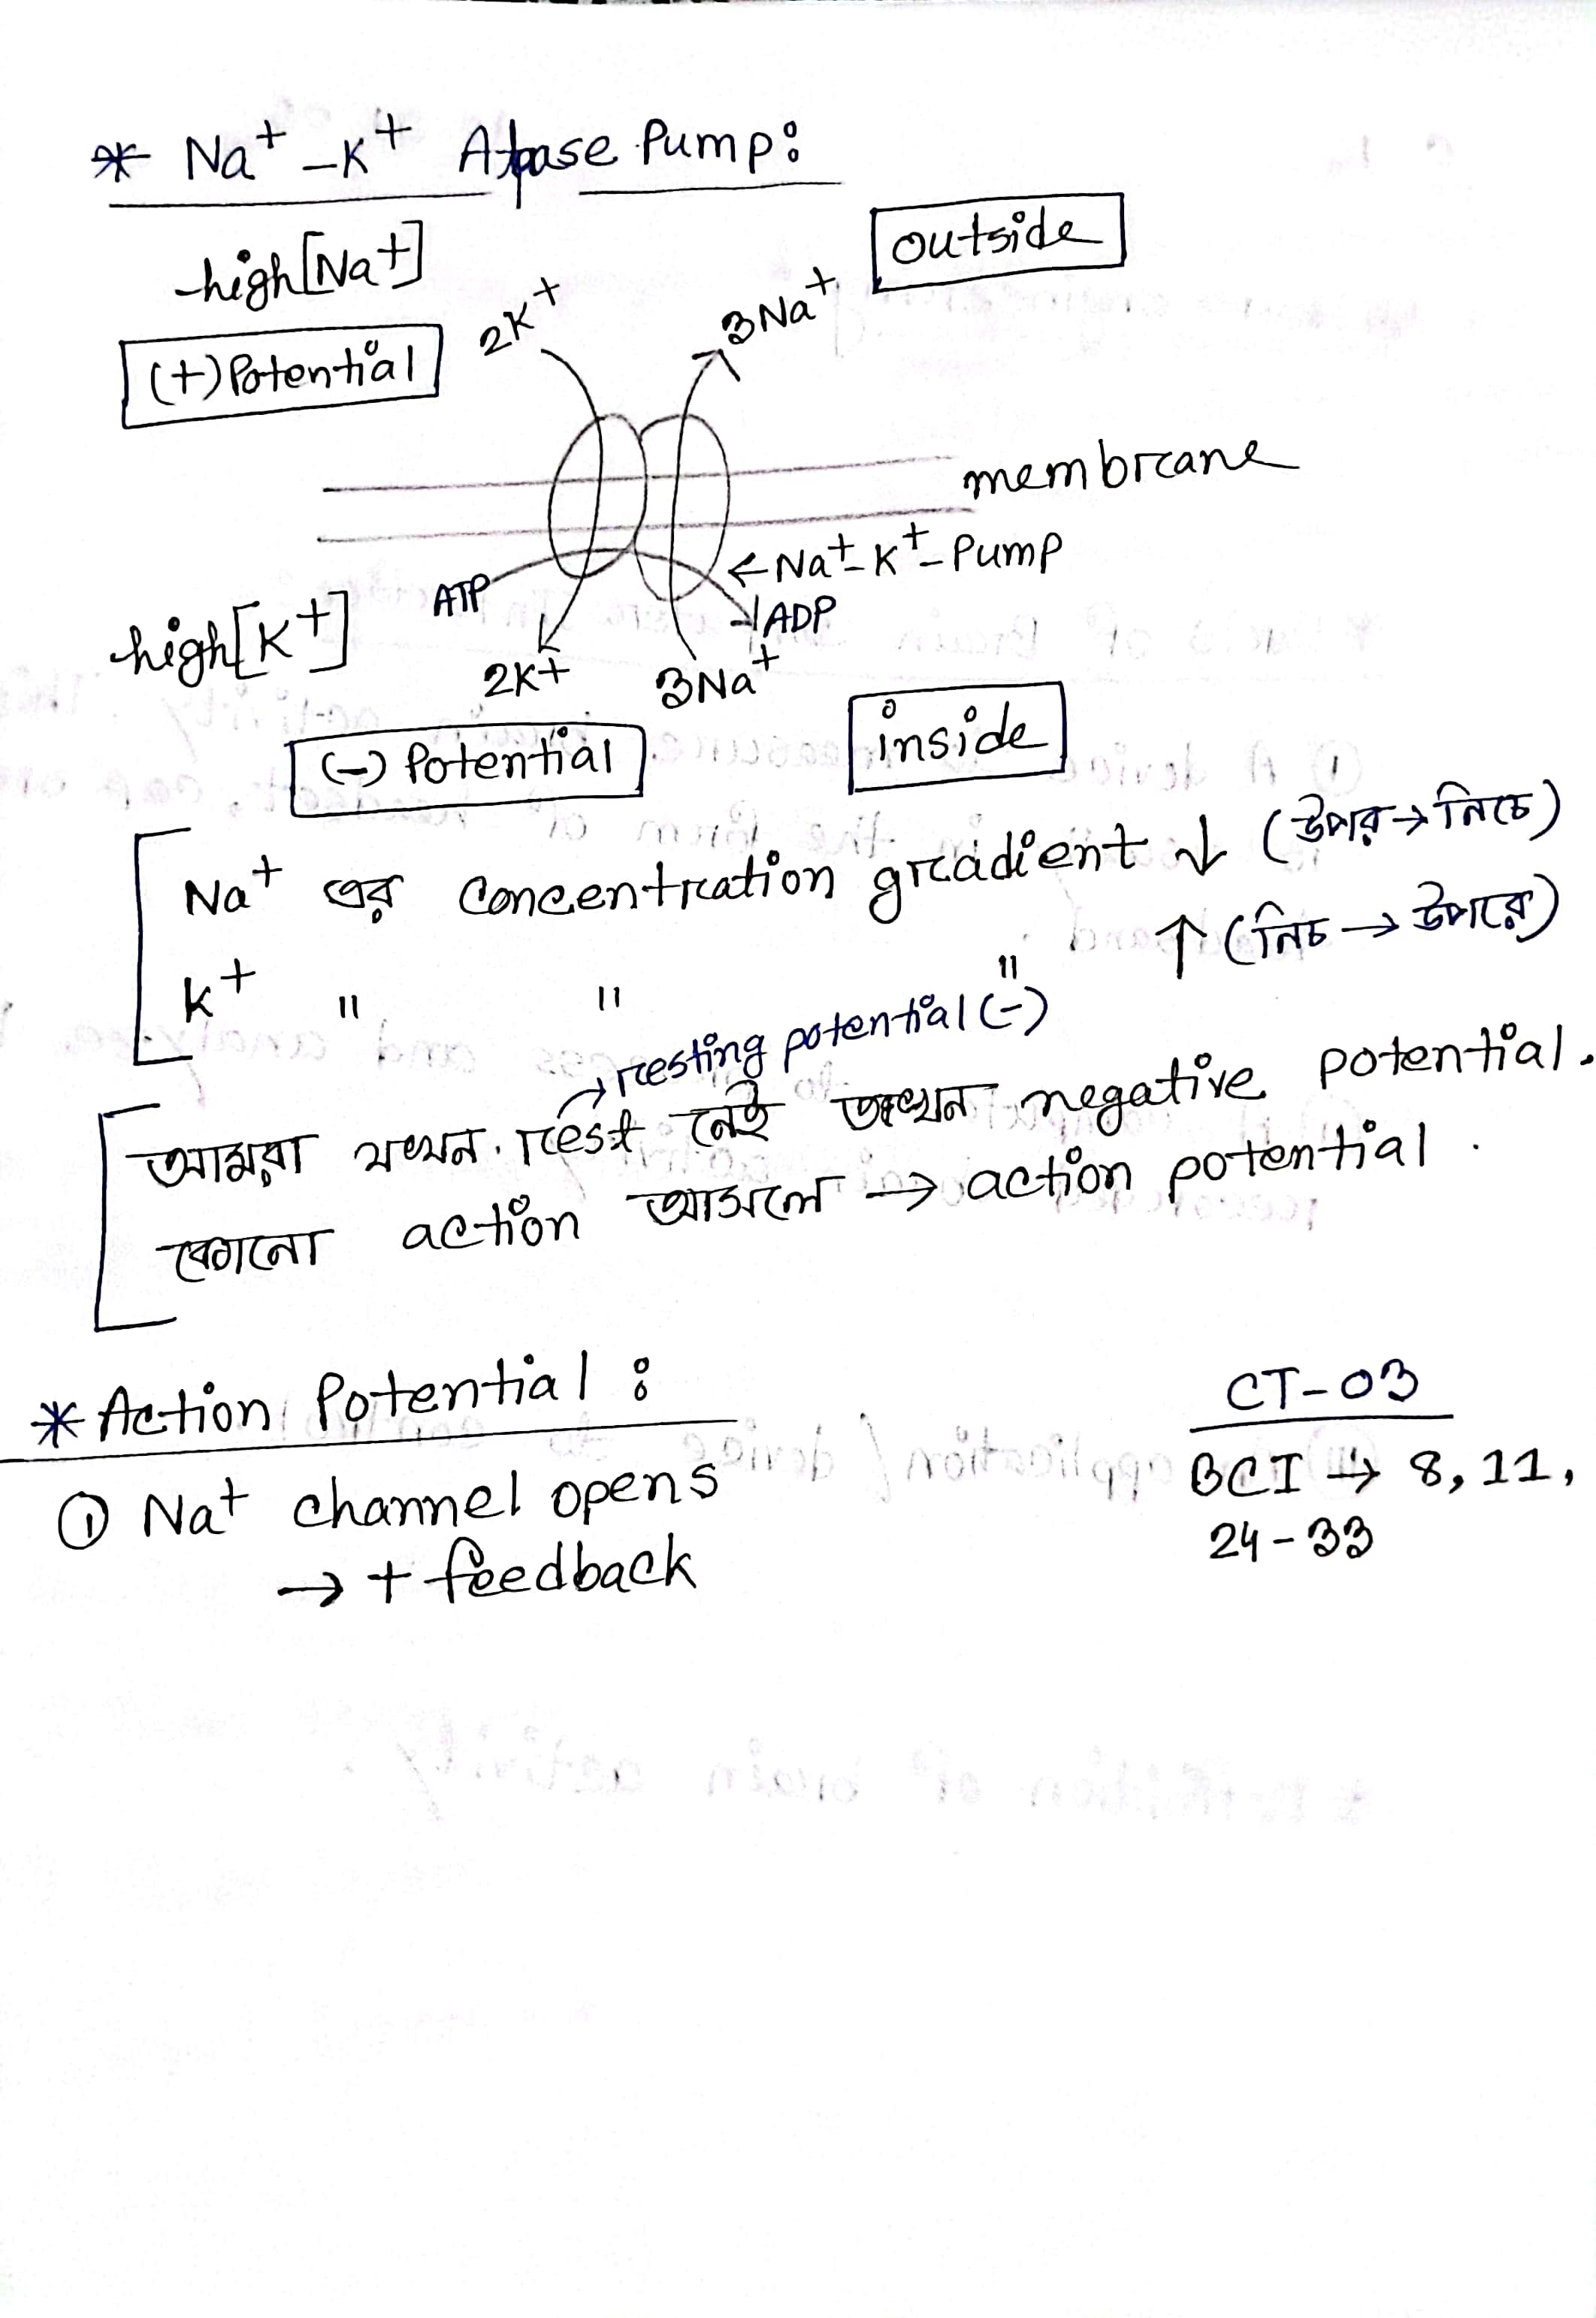 * Na+ -K+ Atpase Pump:
high[Na+]
outside
(+) Potential
2K+
3Na+
membrane
← Na+-K+-Pump
ATP
ADP
high[K+]
2K+
3Na+
(-) Potential
inside
Na+ এর Concentration gradient ↓ (উপর → নিচে)
K+ " " " ↑ (নিচ → উপরে)
→ resting potential (-)
আমরা যখন rest নেই তখন negative potential.
কোনো action আসলে → action potential.
* Action Potential :
① Na+ channel opens
→ + feedback
CT-03
BCI → 8, 11,
24-33